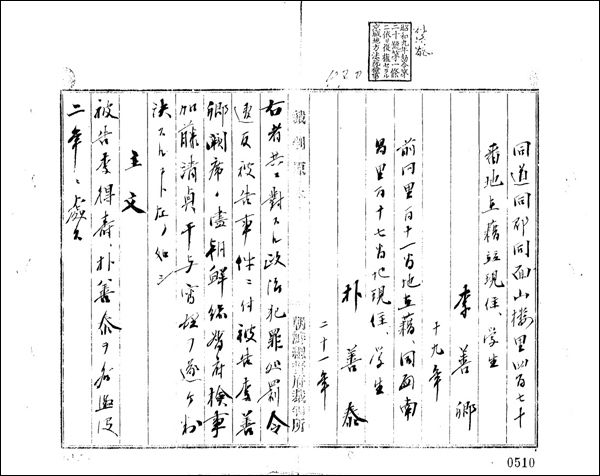 昭和九年勅令第
二十號第一條
ニ依リ復權セラル
同道同郡同面山樓里四百七十
番地在籍現住、学生
李善卿
十九年
前同里百十一番地在籍、同面南
昌里百十七番地現住、学生
朴善泰
二十一年
朝鮮總督府裁判所
右者共ニ對スル政治犯罪処罰令
違反被告事件ニ付被告李善
卿闕席ノ儘朝鮮総督府検事
加藤清貞干与審理ヲ遂ケ判
決スルコト左ノ如シ
主文
被告李得壽、朴善泰ヲ各懲役
二年ニ處ス
0510